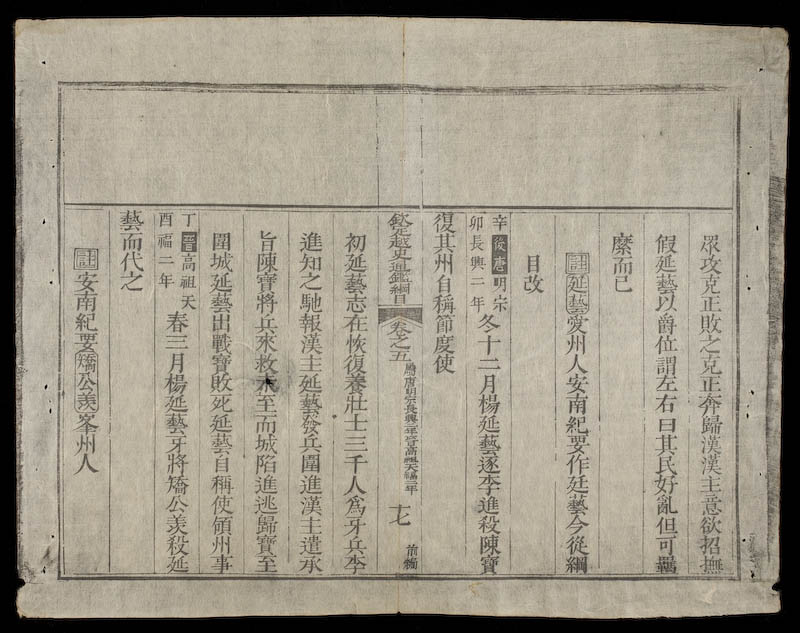 眾攻克正敗之克正奔歸漢漢主意欲招撫
假延藝以爵位謂左右曰其民好亂但可羈
縻而已
註延藝愛州人安南紀要作廷藝今從綱
目改
辛卯後唐明宗長興二年冬十二月楊延藝逐李進殺陳寶
復其州自稱節度使
欽定越史通鑑綱目 卷之五 後唐明宗長興二年晉高祖天福二年 十七 前編
初延藝志在恢復養壯士三千人為牙兵李
進知之馳報漢主延藝發兵圍進漢主遣承
旨陳寶將兵來救未至而城陷進逃歸寶至
圍城延藝出戰寶敗死延藝自稱使領州事
丁酉晉高祖天福二年春三月楊延藝牙將矯公羨殺延
藝而代之
註安南紀要矯公羨峯州人